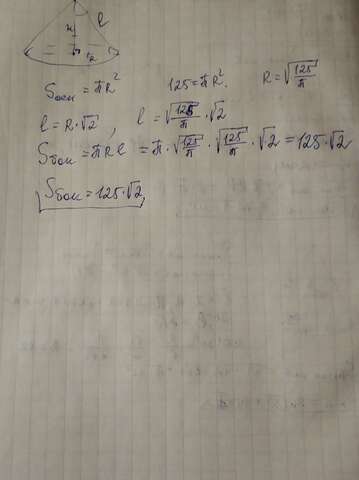 l
S осн = πR² 125 = πR². R = √(125/π)
l = R·√2, l = √(125/π)·√2
S бок = πRl = π·√(125/π)·√(125/π)·√2 = 125·√2
S бок = 125·√2,